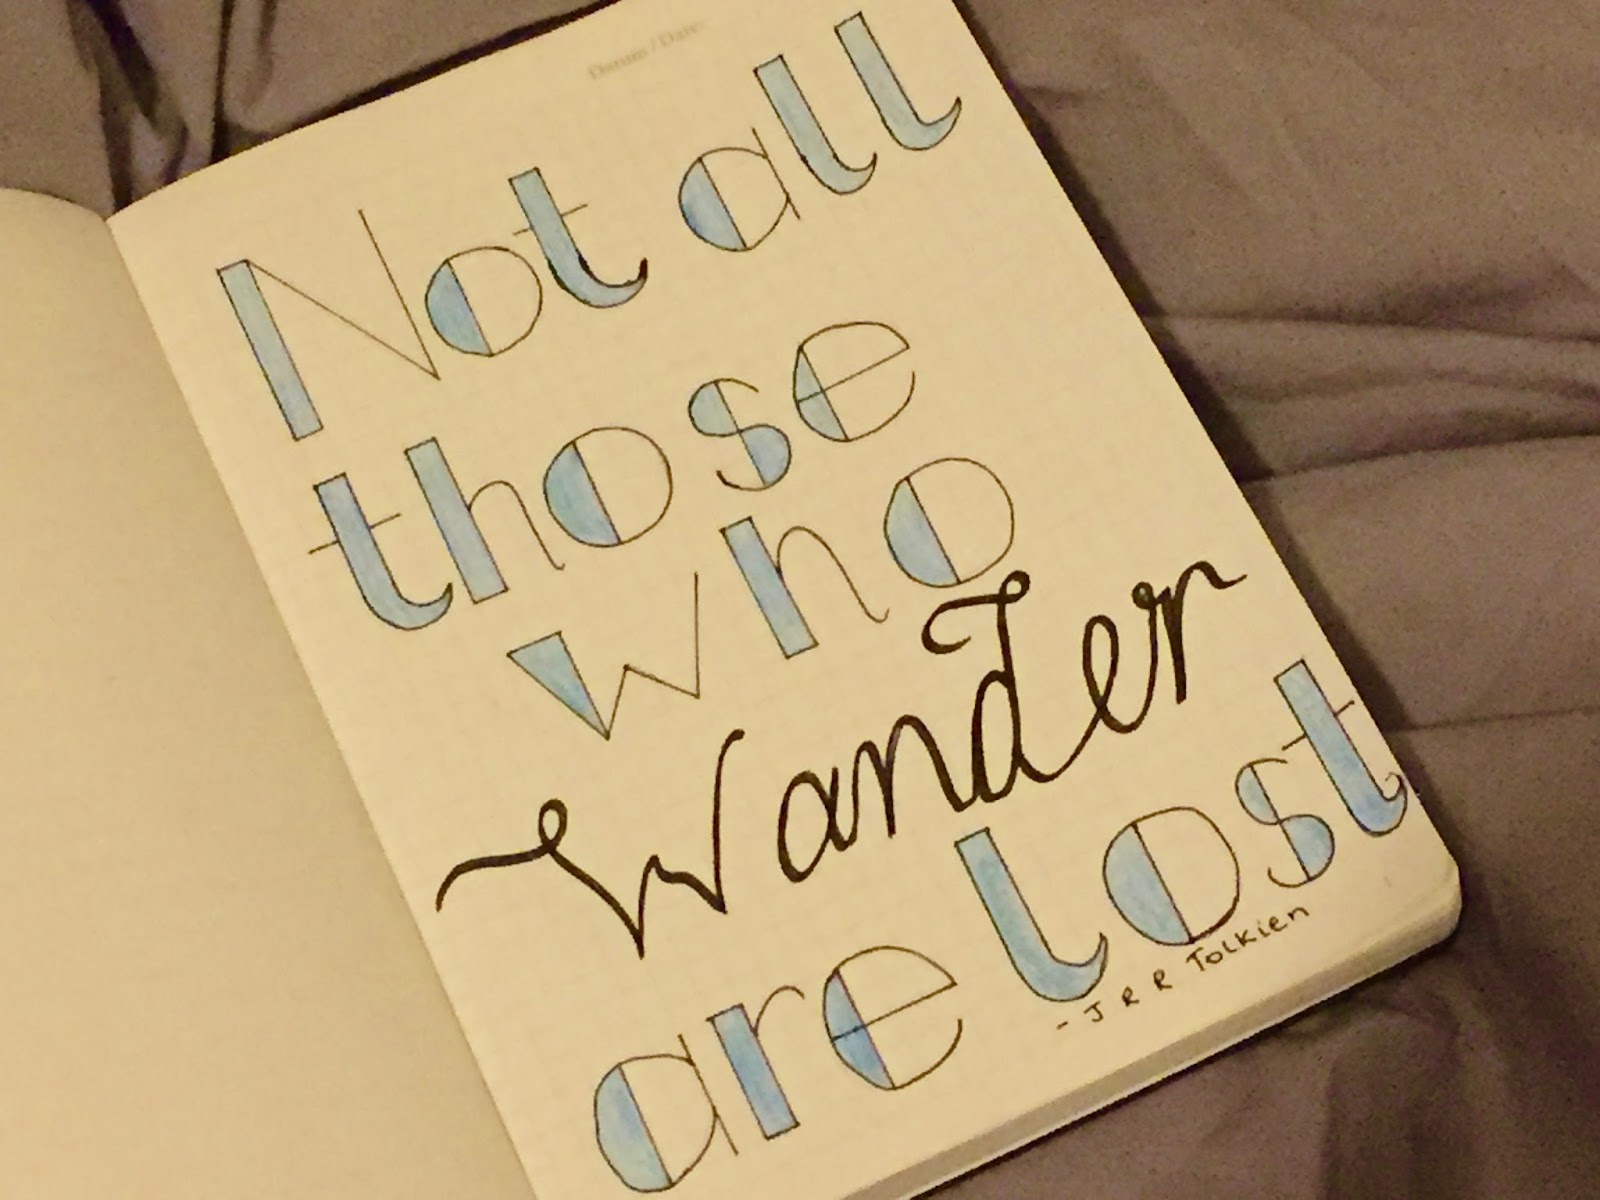 Datum / Date:
Not all
those
who
Wander
are lost
- J R R Tolkien